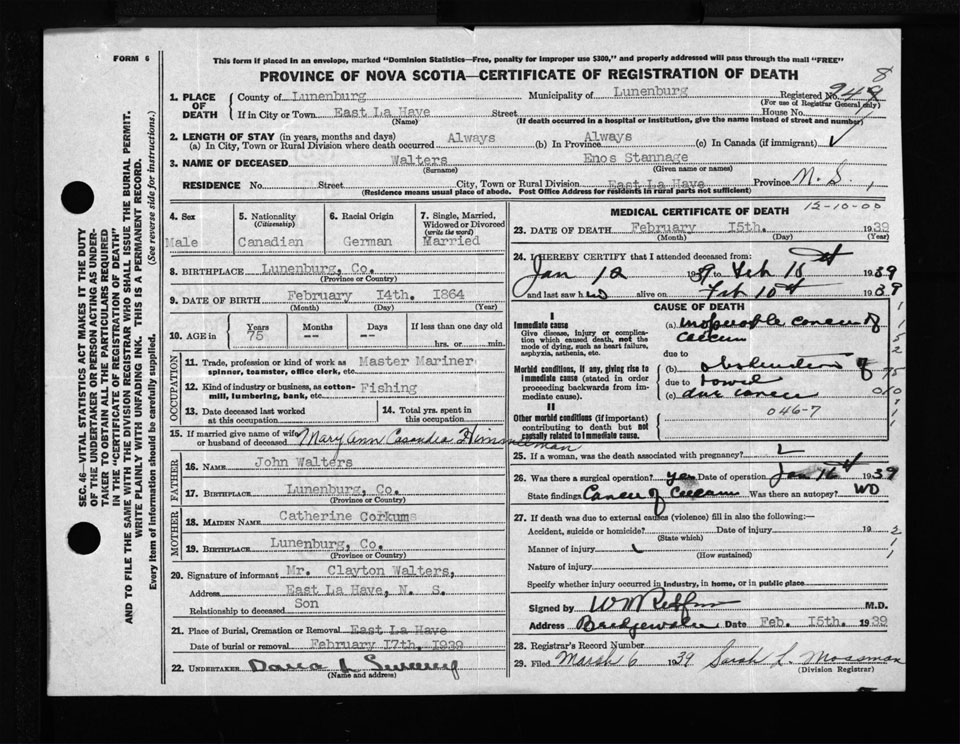 FORM 6
This form if placed in an envelope, marked "Dominion Statistics—Free, penalty for improper use $300," and properly addressed will pass through the mail "FREE"
PROVINCE OF NOVA SCOTIA—CERTIFICATE OF REGISTRATION OF DEATH
8
1. PLACE OF DEATH County of Lunenburg Municipality of Lunenburg Registered No. 948
(For use of Registrar General only)
If in City or Town East La Have Street House No.
(Name) (If death occurred in a hospital or institution, give the name instead of street and number)
2. LENGTH OF STAY (in years, months and days)
(a) In City, Town or Rural Division where death occurred Always (b) In Province Always (c) In Canada (if immigrant)
3. NAME OF DECEASED Walters Enos Stannage
(Surname) (Given name or names)
RESIDENCE No. Street City, Town or Rural Division East La Have Province N. S.
(Residence means usual place of abode. Post Office Address for residents in rural parts not sufficient)
4. Sex Male
5. Nationality (Citizenship) Canadian
6. Racial Origin German
7. Single, Married, Widowed or Divorced (write the word) Married
8. BIRTHPLACE Lunenburg, Co.
(Province or Country)
9. DATE OF BIRTH February 14th. 1864
(Month) (Day) (Year)
10. AGE in Years 75 Months -- Days -- If less than one day old hrs. or min.
OCCUPATION
11. Trade, profession or kind of work as spinner, teamster, office clerk, etc. Master Mariner
12. Kind of industry or business, as cotton-mill, lumbering, bank, etc. Fishing
13. Date deceased last worked at this occupation
14. Total yrs. spent in this occupation
15. If married give name of wife or husband of deceased Mary Ann Casandra Himmelman
FATHER
16. Name John Walters
17. Birthplace Lunenburg, Co.
(Province or Country)
MOTHER
18. MAIDEN NAME Catherine Corkums
19. Birthplace Lunenburg, Co.
(Province or Country)
20. Signature of informant Mr. Clayton Walters,
Address East La Have, N. S.
Relationship to deceased Son
21. Place of Burial, Cremation or Removal East La Have
Date of burial or removal February 17th. 1939
22. UNDERTAKER
(Name and address)
MEDICAL CERTIFICATE OF DEATH
12-10-00
23. DATE OF DEATH February 15th. 1939
(Month) (Day) (Year)
24. I HEREBY CERTIFY that I attended deceased from:
Jan 12 1939 to Feb 1939
and last saw h alive on Feb 10th 1939
CAUSE OF DEATH
I
Immediate cause
Give disease, injury or complication which caused death, not the mode of dying, such as heart failure, asphyxia, asthenia, etc.
(a) inoperable cancer of caecum
due to
Morbid conditions, if any, giving rise to immediate cause (stated in order proceeding backwards from immediate cause).
(b) obstruction of bowel
due to
(c) due cancer
II
Other morbid conditions (if important) contributing to death but not causally related to immediate cause.
046-7
25. If a woman, was the death associated with pregnancy?
26. Was there a surgical operation? yes Date of operation Jan 16th 1939
State findings Cancer of Caecum Was there an autopsy? no
27. If death was due to external causes (violence) fill in also the following:—
Accident, suicide or homicide? Date of injury 19
(State which)
Manner of injury
(How sustained)
Nature of injury
Specify whether injury occurred in industry, in home, or in public place
Signed by M.D.
Address Bridgewater Date Feb. 15th. 1939
28. Registrar's Record Number
29. Filed March 6 1939 Sarah L. Mossman
(Division Registrar)
SEC. 46—VITAL STATISTICS ACT MAKES IT THE DUTY
OF THE UNDERTAKER OR PERSON ACTING AS UNDER-
TAKER TO OBTAIN ALL THE PARTICULARS REQUIRED
IN THE "CERTIFICATE OF REGISTRATION OF DEATH"
AND TO FILE THE SAME WITH THE DIVISION REGISTRAR WHO SHALL ISSUE THE BURIAL PERMIT.
WRITE PLAINLY WITH UNFADING INK. THIS IS A PERMANENT RECORD.
Every item of information should be carefully supplied. (See reverse side for instructions.)